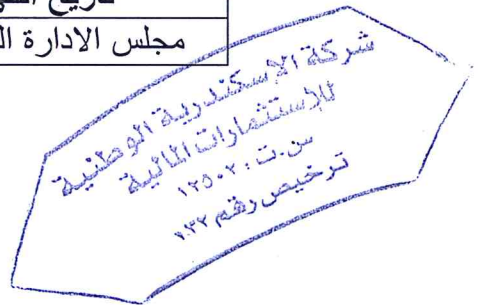 مجلس الادارة
شركة الإسكندرية الوطنية
للإستثمارات المالية
س.ت: ١٢٥٠٢
ترخيص رقم ١٣٢